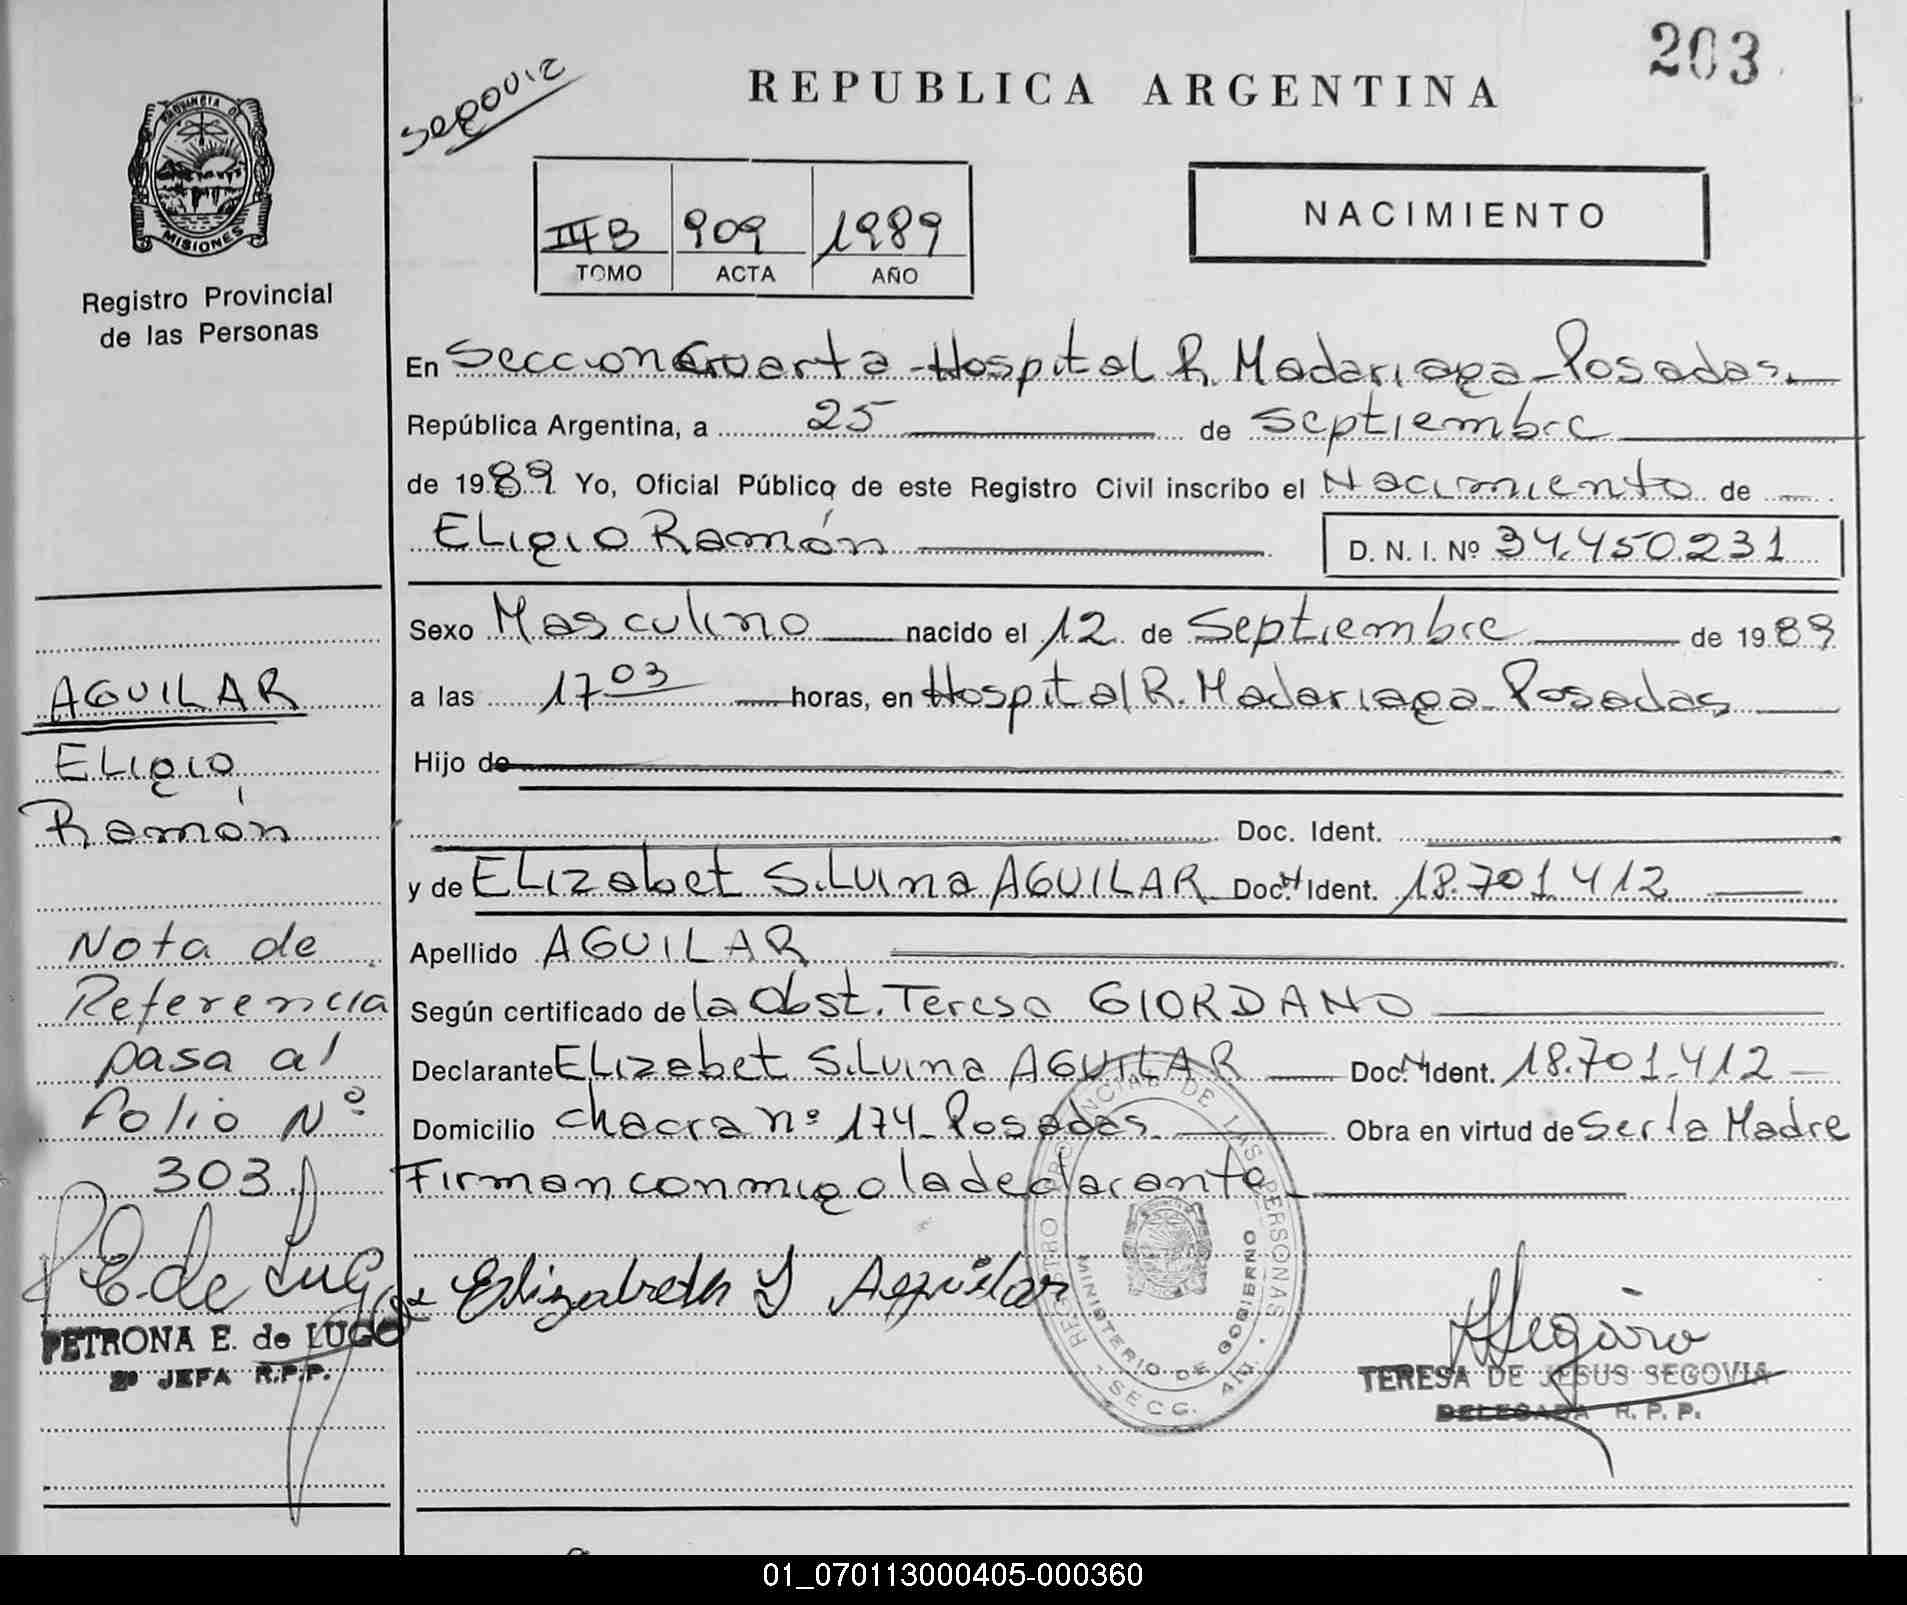 203
Segovia
REPUBLICA ARGENTINA
PROVINCIA DE
MISIONES
Registro Provincial
de las Personas
III B 909 1989
TOMO ACTA AÑO
NACIMIENTO
En Seccion Cuarta - Hospital R. Madariaga - Posadas.
República Argentina, a 25 de Septiembre
de 1989 Yo, Oficial Público de este Registro Civil inscribo el Nacimiento de
Eligio Ramón D. N. I. Nº 34.450.231
Sexo Masculino nacido el 12 de Septiembre de 1989
a las 17 03 horas, en Hospital R. Madariaga - Posadas
Hijo de
Doc. Ident.
y de Elizabet Silvina AGUILAR Doc. Ident. 18.701.412
Apellido AGUILAR
Según certificado de la Obst. Teresa GIORDANO
Declarante Elizabet Silvina AGUILAR Doc. Ident. 18.701.412
Domicilio Chacra nº 174 - Posadas Obra en virtud de Ser la Madre
Firman conmigo la declarante
AGUILAR
Eligio
Ramón
Nota de
Referencia
pasa al
folio Nº
303
P. E. de Lugo
PETRONA E. de LUGO
2º JEFA R.P.P.
Elizabeth S Aguilar
REGISTRO PROVINCIAL DE LAS PERSONAS
MINISTERIO DE GOBIERNO
SECC. 4ta.
TERESA DE JESUS SEGOVIA
DELEGADA R. P. P.
01_070113000405-000360